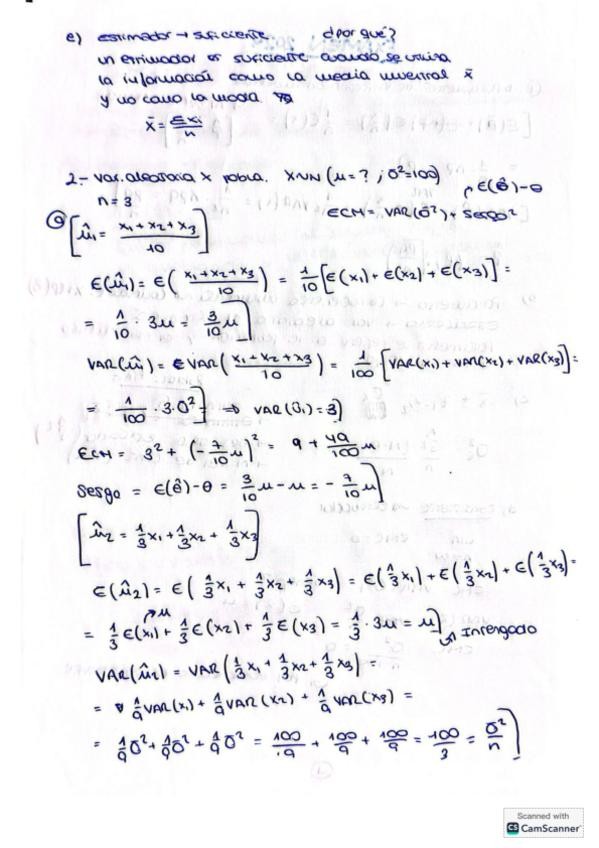 e) estimador → suficiente ¿por qué?
un estimador es suficiente cuando se utiliza
la información como la media muestral x̄
y no como la moda.
x̄ = Σxi/n
2.- Var. aleatoria X pobla. X~N (μ = ? ; σ²=100)
n = 3
ECM = VAR(Ô²) + sesgo²
E(θ̂) - θ
a) [μ̂1 = (x1 + x2 + x3)/10]
E(μ̂1) = E((x1 + x2 + x3)/10) = 1/10 [E(x1) + E(x2) + E(x3)] =
= 1/10 · 3μ = 3/10 μ]
VAR(μ̂1) = VAR((x1 + x2 + x3)/10) = 1/100 · [VAR(x1) + VAR(x2) + VAR(x3)] =
= 1/100 · 3·σ²] ⇒ VAR(Û1) = 3]
ECM = 3² + (-7/10 μ)² = 9 + 49/100 μ
Sesgo = E(θ̂) - θ = 3/10 μ - μ = - 7/10 μ]
[μ̂2 = 1/3 x1 + 1/3 x2 + 1/3 x3]
E(μ̂2) = E(1/3 x1 + 1/3 x2 + 1/3 x3) = E(1/3 x1) + E(1/3 x2) + E(1/3 x3) =
= 1/3 E(x1) + 1/3 E(x2) + 1/3 E(x3) = 1/3 · 3μ = μ] ↪ Insesgado
↗ μ
VAR(μ̂2) = VAR(1/3 x1 + 1/3 x2 + 1/3 x3) =
= 1/9 VAR(x1) + 1/9 VAR(x2) + 1/9 VAR(x3) =
= 1/9 σ² + 1/9 σ² + 1/9 σ² = 100/9 + 100/9 + 100/9 = 100/3 = σ²/n]
Scanned with
CS CamScanner